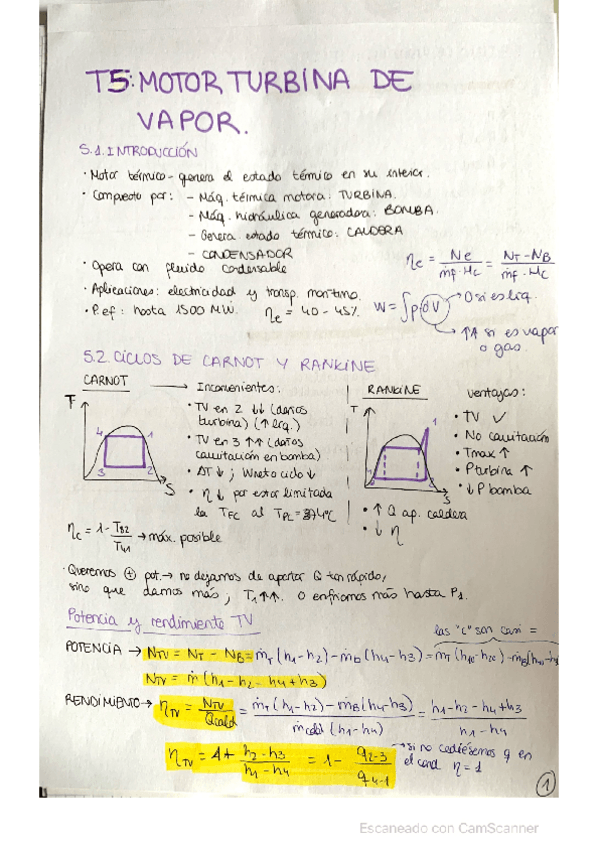 T5: MOTOR TURBINA DE
VAPOR.
5.1. INTRODUCCIÓN
· Motor térmico - genera el estado térmico en su interior.
· Compuesto por: - Máq. térmica motora: TURBINA.
- Máq. hidráulica generadora: BOMBA.
- Genera estado térmico: CALDERA
- CONDENSADOR
· Opera con fluido condensable
ηe = Ne / ṁf · Hc = NT - NB / ṁf · Hc
· Aplicaciones: electricidad y transp. marítimo.
· P. ef: hasta 1500 MW. ηe = 40 - 45%
W = ∫ p dV → 0 si es líq.
→ ↑↑ si es vapor
o gas.
5.2. CICLOS DE CARNOT Y RANKINE
CARNOT → Inconvenientes:
T
4 1
3 2
S
· TV en 2 ↓↓ (daños
turbina) (↑ líq.)
· TV en 3 ↑↑ (daños
cavitación en bomba)
· ΔT ↓ ; Wneto ciclo ↓
· η ↓ por estar limitada
la TFC al TPC = 374°C
RANKINE
T
1
S
· ↑ Q ap. caldera
· ↓ η
Ventajas:
· TV ✓
· No cavitación
· Tmax ↑
· Pturbina ↑
· ↓ P bomba
ηc = 1 - → máx. posible
· Queremos ⊕ pot. → no dejamos de aportar Q tan rápido,
sino que damos más ; T1 ↑↑. O enfriamos más hasta P1.
Potencia y rendimiento TV
las "c" son casi =
POTENCIA → NTV = NT - NB = ṁT (h1 - h2) - ṁB (h4 - h3) = ṁT (h10 - h20) - ṁB
NTV = ṁ (h1 - h2 - h4 + h3)
RENDIMIENTO → ηTV = NTV / Qcald = ṁT (h1 - h2) - ṁB (h4 - h3) / ṁcald (h1 - h4) = h1 - h2 - h4 + h3 / h1 - h4
ηTV = 1 + h2 - h3 / h1 - h4 = 1 - q2-3 / q4-1
→ si no cediésemos q en
el cond η = 1
1
Escaneado con CamScanner